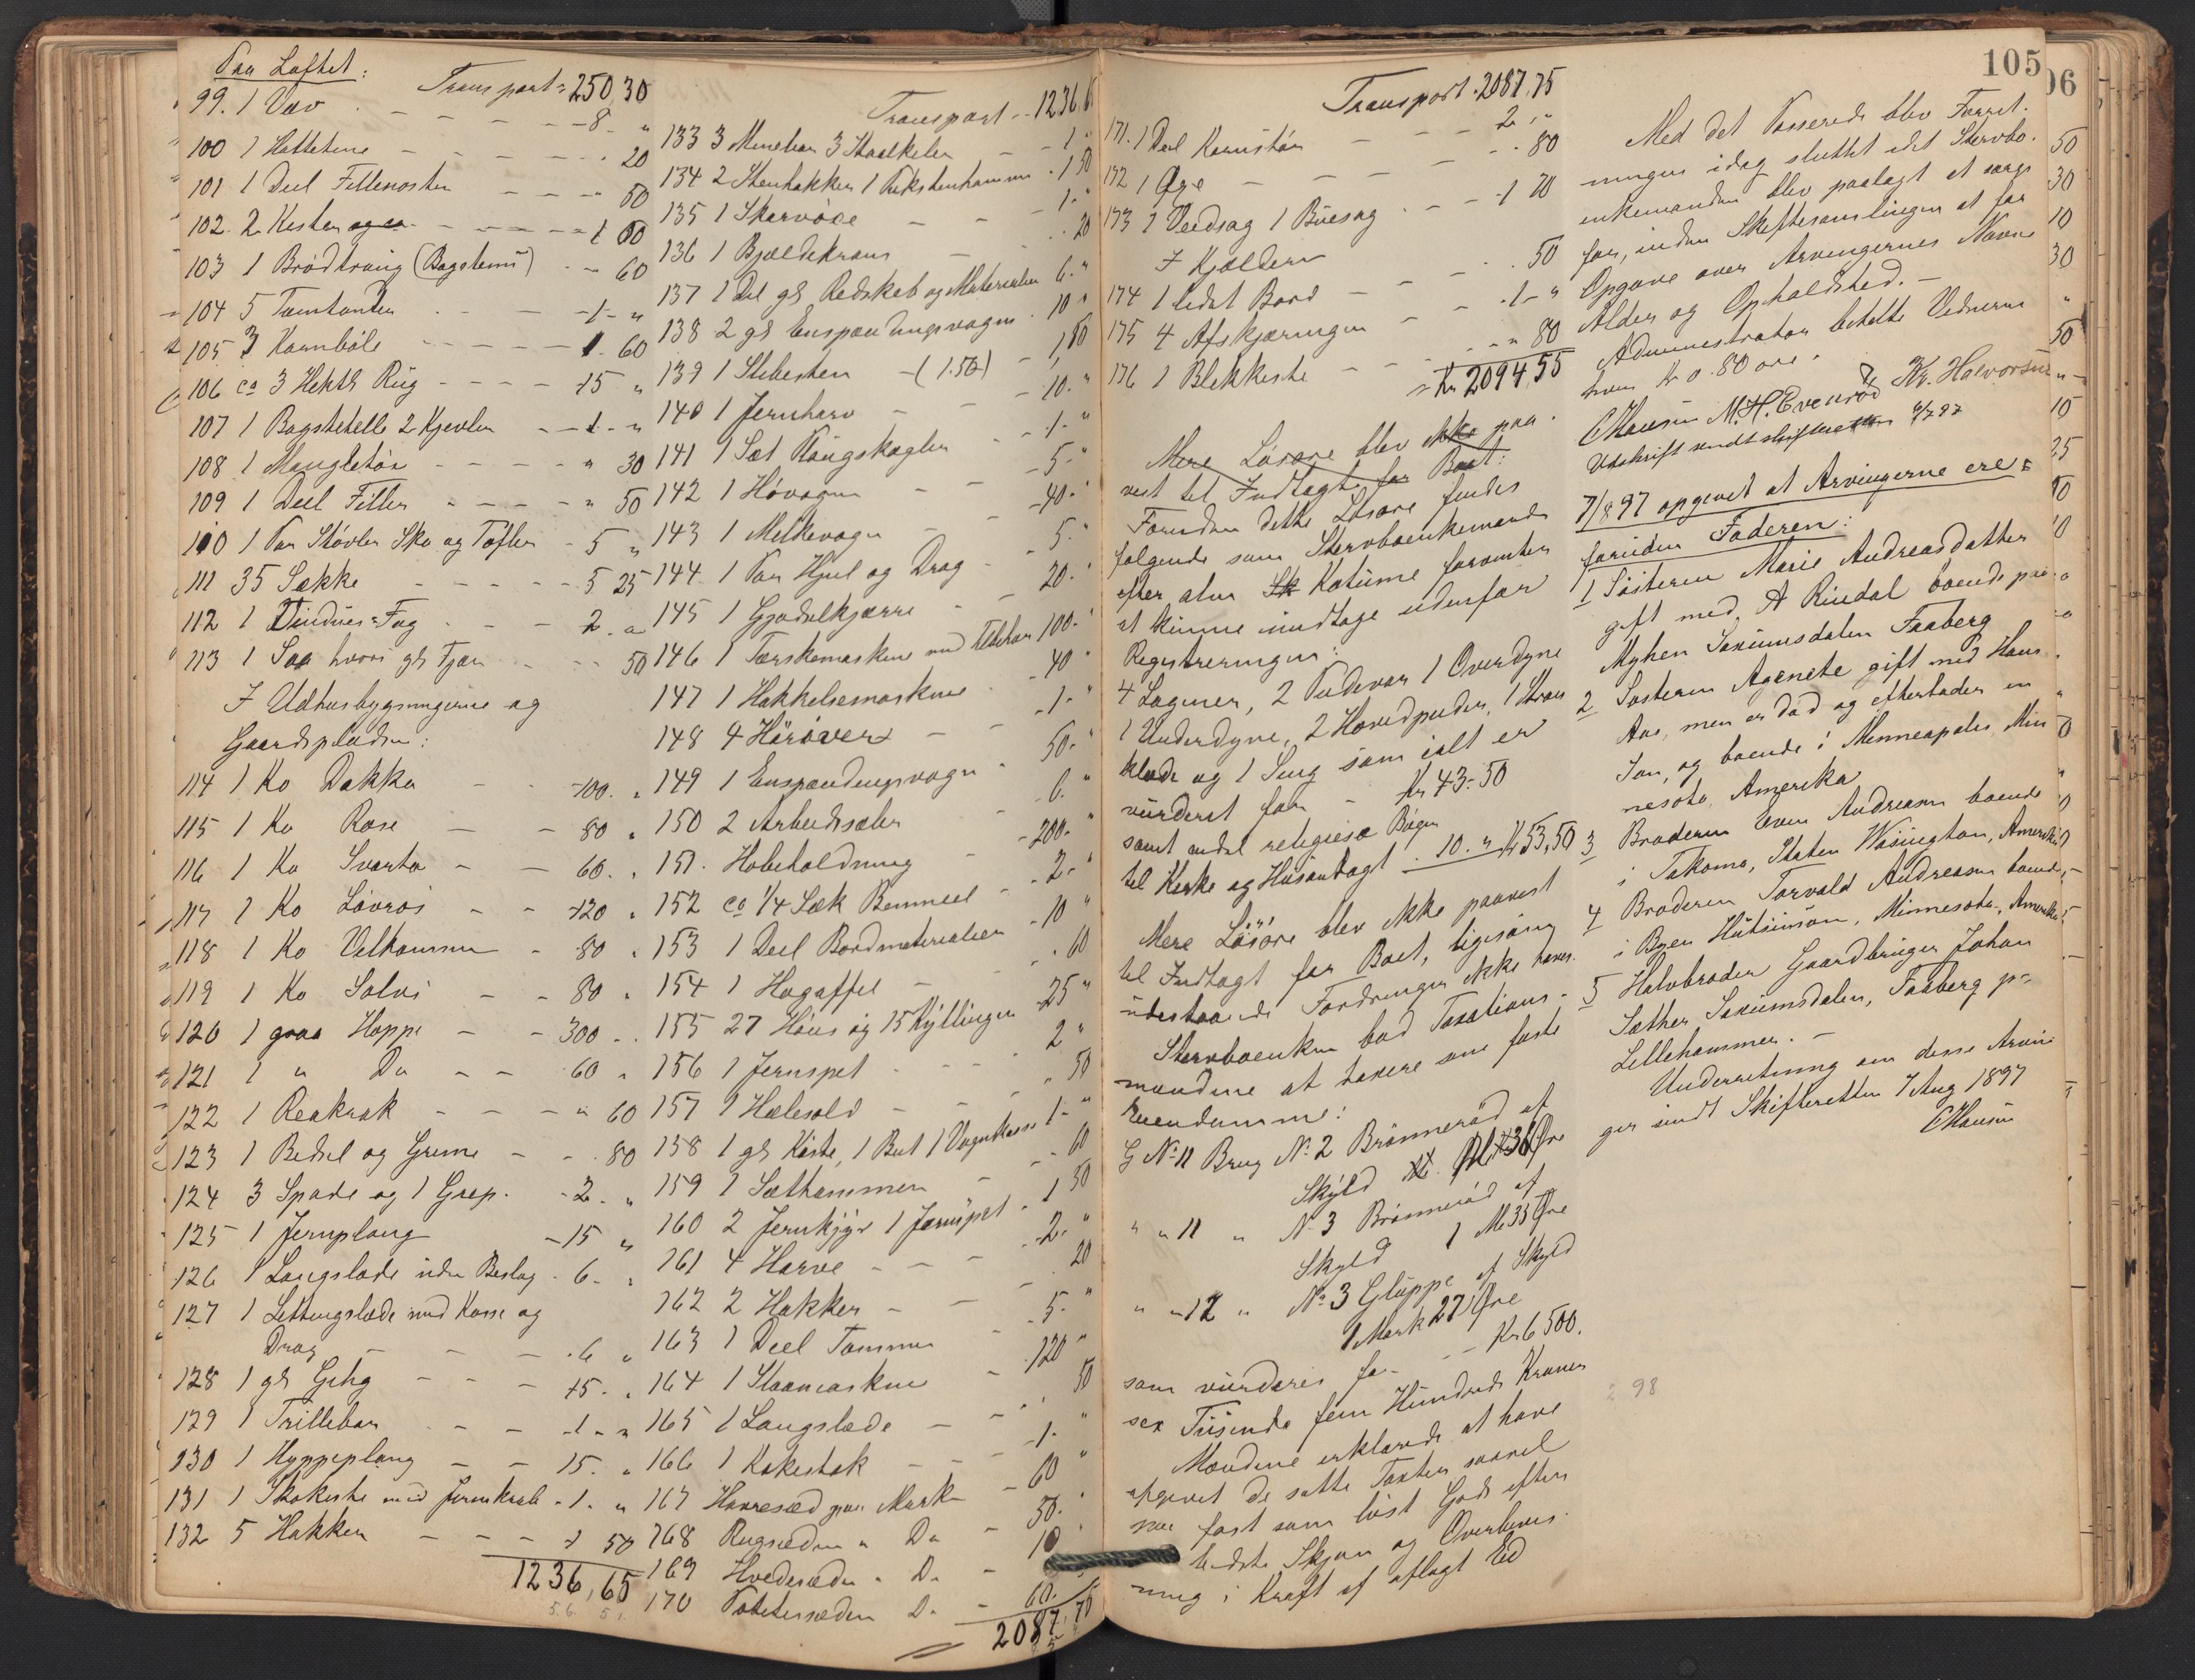 Paa Loftet:
Transport = 250,30
99. 1 Væv - 8 "
100 1 Hattetine - 20
101 1 Deel Filleposter - 50
102. 2 Kister - 1 00
103 1 Brødtroug (Bagstetrou) - 60
104 5 Tomtønder - 1 - "
105 3 Kornbøle - 1. 60
106 ca 3 Hektl Rug - 15 "
107 1 Bagstehelle 2 Kjevler - 1 - "
108 1 Mangletøi - " 30
109 1 Deel Filler - " 50
110 1 Par Støvler Sko og Tøfler - 5 "
111 35 Sække - 5 25
112 1 Vindues-Fag - 2 "
113 1 Saa hvori gl Tjære 50
I Udhusbygningerne og
Gaardspladsen:
114 1 Ko Dokka - 100. "
115 1 Ko Rose - 80 "
116 1 Ko Svarta - 60. "
117 1 Ko Løvros - 120 "
118 1 Ko Velkommen - 80 "
119 1 Ko Solvi - 80 "
120 1 graa Hoppe - 300 "
121 1 " Do - 60 "
122 1 Reakrak - " 60
123 1 Bedsel og Grime - 80
124 3 Spade og 1 Grep. - 2. "
125 1 Jernploug - 15 "
126 1 Langslæde uden Beslag - 6. "
127 1 Letteugslæde med Kasse og
Drag - 6 "
128 1 gl Gihg - 15. "
129 1 Trillebør - 1 - "
130 1 Hyppeploug - 15. "
131 1 Skokiste med Jernskrab - 1. "
132 5 Hakker - 1 50
1236,65
Transport - 1236 6
133 3 Minebor 3 Staalkiler - 1 "
134 2 Stenhakker 1 Pukstenhammer - 1 50
135 1 Skarvøxe - 1 - "
136 1 Bjældekrans - 20
137 1 Del gl Redskab og Materialier 6. "
138 2 gl Enspændingsvogne 10 "
139 1 Slibesten - (1.50) - 1,50
140 1 Jernharv - 10. "
141 1 Sæt Vaugskagler - 1 - "
142 1 Høvogn - 5 - "
143 1 Melkevogn - 40 - "
144 1 Par Hjul og Drag - 5. "
145 1 Gjødselkjærre - 20. "
146 1 Tærskemaskine med Tilbehør 100 - "
147 1 Hakkelsemaskine - 40 "
148 4 Hørøver - 1 - "
149 1 Enspændingsvogn - 50 - "
150 2 Arbeidsæler - 6. "
151. Høbeholdning - 200 - "
152 ca 1/4 Sæk Benmeel - 2 - "
153 1 Deel Bordmaterialier - 10 "
154 1 Høgaffel - 60
155 27 Høns og 15 Kyllinger 25 "
156 1 Jernspet - 2 "
157 1 Hælesold - " 50
158 1 gl Kiste, 1 But 1 Vognkasse 1 - "
159 1 Sæthammer - 60
160 2 Jernkjør 1 Jernspet - 1 50
161 4 Harve - 2 - "
162 2 Hakker - 20
163 1 Deel Tømmer - 5 - "
164 1 Slaamaskine - 120 "
165 1 Langslæde - 50
166 1 Kakestok - 1 - "
167 Havresæd paa Mark - 60 "
168 Rugsæden " Do - 50. "
169 Hvedesæden " Do - 10
170 Potetessæden Do - 60 -
2087,70
105
Transport. 2087,75
171. 1 Deel Kornstør - 2 . "
172 1 Øxe - . 80
173 1 Vedsag 1 Buesag - 1 70
I Kjælderen
174 1 lidet Bord - . 50
175 4 Afskjæringer - 1 - "
176 1 Blekkiste - " 80
Kr 2094,55
Mere Løsøre blev ikke paa-
vist til Indtægt for Boet:
Foruden dette Løsøre findes
følgende som Stervboenkemanden
efter sin Kotume formenter
at kunne undtage udenfor
Registreringen:
4 Lagner, 2 Pudevar 1 Overdyne
1 Underdyne, 2 Hovedpuder, 1
klæde og 1 Seng som ialt er
vurderet for - Kr 43-50
samt endel religiøse Bøger
til Kirke og Husandagt - 10. " Kr 53,50
Mere Løsøre blev ikke paavist
til Indtægt for Boet, ligesaa
udestaaende Fordringer ikke haves.
Stervboenken bad Taxations-
mændene at taxere sine faste
Eiendomme:
G No 11 Brug No 2 Brønnerød af
Skyld
" " 11 " No 3 Brønnerød af
Skyld 1 M 33 Øre
" " 12 " No 3 Gluppe af Skyld
1 Mark 27 Øre
som vurderes for - Kr 6500.
sex Tusinde fem Hundrede Kroner
Mændene erklærede at have
afgivet de satte Taxter saavel
paa fast som løst Gods efter
bedste Skjøn og Overbevis-
ning i Kraft af aflagt Eid
Med det Passerede blev Forret-
ningen idag sluttet idet Stervbo-
enkemanden blev paalagt at sørge
for, inden Skiftesamlingen at faa
Opgave over Arvingernes Navne
Alder og Opholdsted. -
Administrator betalte Vidnerne
hver Kr 0.80 øre.
CHansen M. H. Evenrød Kr. Halvorsen
Udskrift sendt skifteretten 6/7 97
7/8 97 opgivet at Arvingerne ere
foruden Faderen:
1 Søsteren Marie Andreasdatter
gift med A Rindal boende paa
Myhen Saxumsdalen Faaberg
2 Søsteren Agenete gift med Hans
Aas, men er død og efterlader en
Søn, og boende i Minneapolis, Min
nesota, Amerika
3 Broderen Even Andreasen boende
i Takoma, Staten Wasington, Amerika
4 Broderen Torvald Andreasen boende
i Byen Hutsinson, Minnesota, Amerika
5 Halvbroder Gaardbruger Johan
Sæther Saxumsdalen, Faaberg pr
Lillehammer. -
Underretning om disse Arvin-
ger sendt Skifteretten 7 Aug 1897
CHansen
98